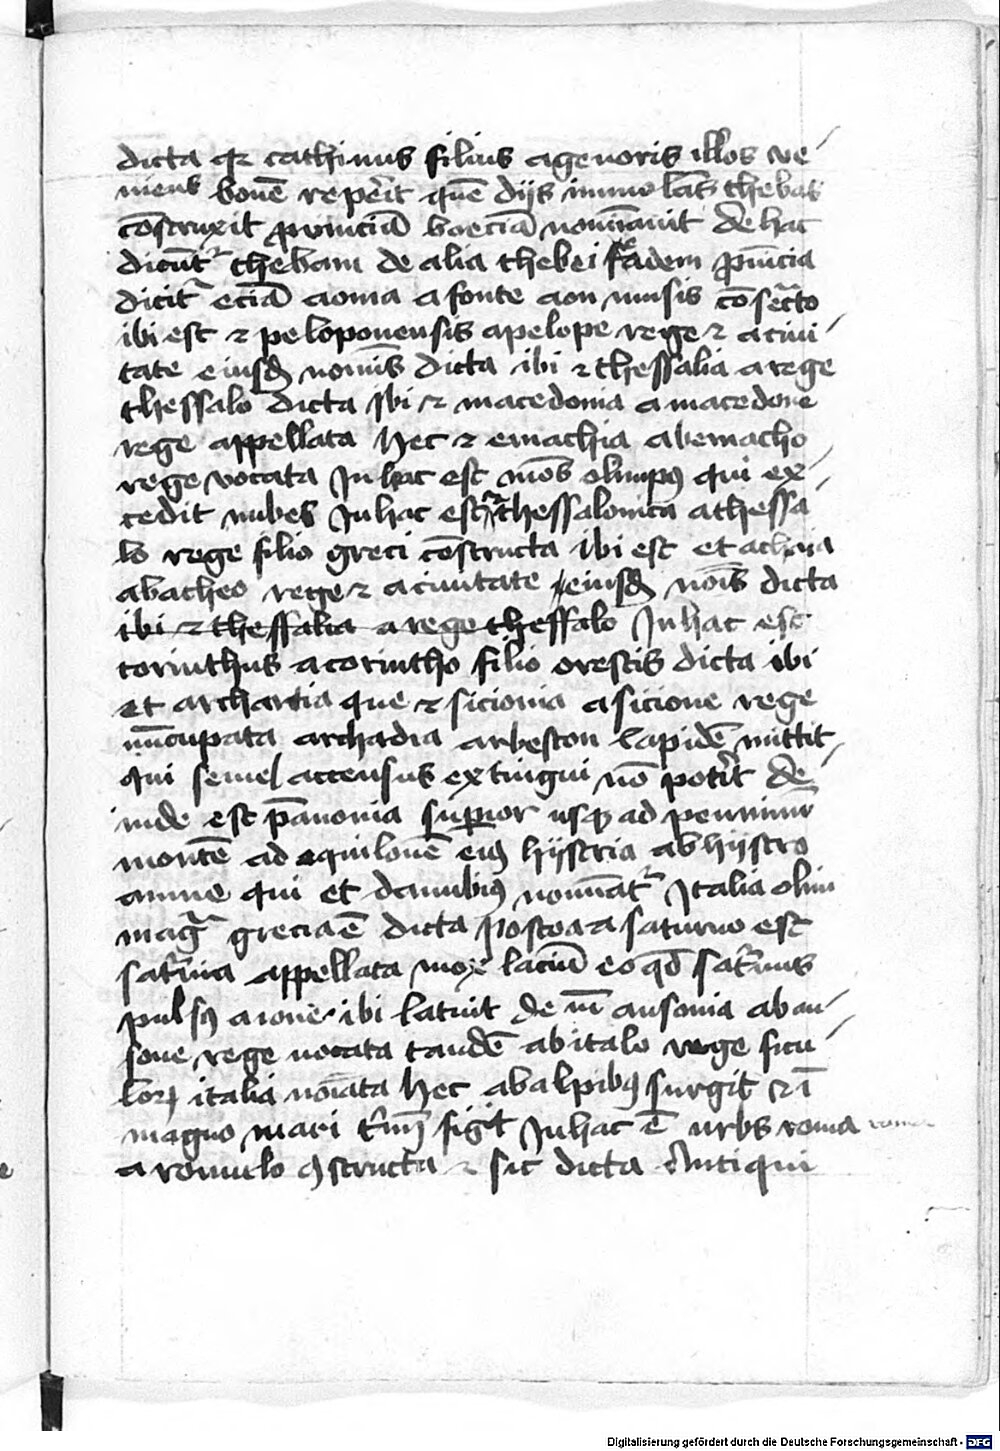 dicta qr cathimus filius agenoris illos ve
niens bouē reperit quē dijs immolās thebas
cōstruxit prouinciā boeciā nominauit de hac
dicūtr thebani de alia thebei eadem prouīcia
dicitr eciā aonia a fonte aon musis cōsecrato
ibi est et peloponensis a pelope rege et a ciui
tate eiusdē nominis dicta ibi et thessalia a rege
thessalo dicta Ibi et macedonia a macedone
rege appellata Hec et emachia ab emacho
rege vocata In hac est mōs olimpus qui ex
cedit nubes In hac est et thessalonica a thessa
lo rege filio greci cōstructa ibi est et achaia
ab acheo rege et a ciuitate eiusdē nois dicta
ibi et thessalia a rege thessalo In hac est
corinthus a corintho filio orestis dicta ibi
et archartia que et sicionia a sicione rege
nūcupata archadia arbeston lapidē mittit
qui semel accensus extingui nō poterit de
inde est pānonia superior usque ad penninū
montē ad aquilonē eius hijstria ab hijstro
amne qui et danubius nominatr Italia olim
magna grecia ē dicta Postea a saturno est
saturnia appellata mox laciū eo quod saturnus
pulsus a ioue ibi latuit De ausonia ab au
sone rege uocata tandē ab italo rege sicu
lorum italia noiata Hec ab alpibus surgit et ī
magno mari figit In hac ē urbs roma roma
a romulo 9structa et sic dicta Antiqui
Digitalisierung gefördert durch die Deutsche Forschungsgemeinschaft - DFG